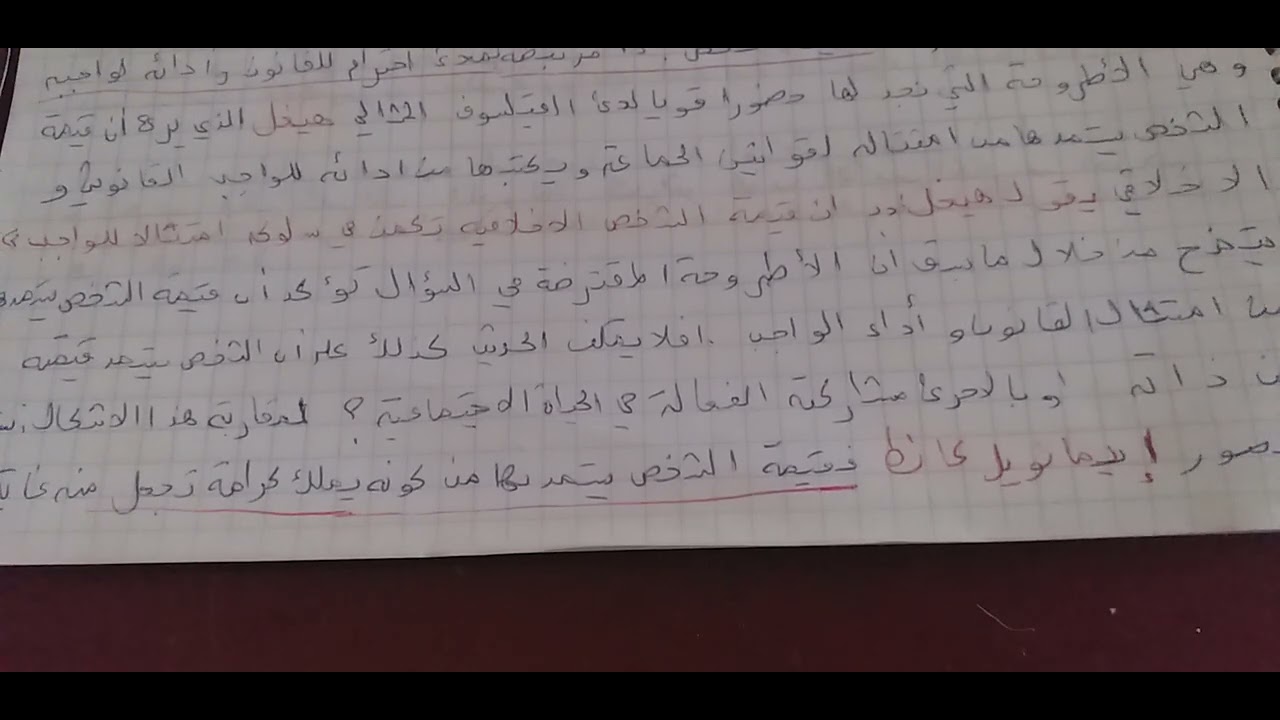 احترام للقانون وأدائه لواجبه
وهي الأطروحة التي نجد لها حضورا قويا لدى الفيلسوف هيغل الذي يرى أن قيمة
الشخص يستمدها من امتثاله لقوانين الجماعة ويكتبها من ادائه للواجب القانوني و
الاخلاقي يقول هيغل ان قيمة الشخص الاخلاقية تكمن في سلوك امتثالا للواجب
يتضح من خلال ما سبق أن الأطروحة المقترضة في السؤال تؤكد أن قيمة الشخص
امتثال القانون و أداء الواجب . افلا يمكن الحديث كذلك على أن الشخص يستمد قيمته
ذاته أو بالاحرى مشاركته الفعالة في الحياة الاجتماعية ؟ لمقاربة هذا الاشكال
إيمانويل كانط فقيمة الشخص يستمدها من كونه يملك كرامة تجعل منه